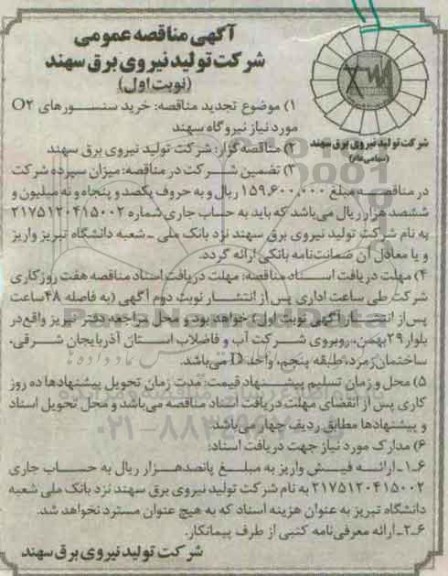 آگهی مناقصه عمومی
شرکت تولید نیروی برق سهند
(نوبت اول)
۱) موضوع تجدید مناقصه: خرید سنسورهای O۲
مورد نیاز نیروگاه سهند
شرکت تولید نیروی برق سهند
(سهامی عام)
۲) مناقصه گزار: شرکت تولید نیروی برق سهند
۳) تضمین شرکت در مناقصه: میزان سپرده شرکت
در مناقصه مبلغ ۱۵۹,۶۰۰,۰۰۰ ریال و به حروف یکصد و پنجاه و نه میلیون و
ششصد هزار ریال می‌باشد که باید به حساب جاری شماره ۲۱۷۵۱۲۰۴۱۵۰۰۲
به نام شرکت تولید نیروی برق سهند نزد بانک ملی ـ شعبه دانشگاه تبریز واریز
و یا معادل آن ضمانت‌نامه بانکی ارائه گردد.
۴) مهلت دریافت اسناد مناقصه: مهلت دریافت اسناد مناقصه هفت روز کاری
شرکت طی ساعت اداری پس از انتشار نوبت دوم آگهی (به فاصله ۴۸ ساعت
پس از انتشار آگهی نوبت اول) خواهد بود و محل مراجعه دفتر تبریز واقع در
بلوار ۲۹ بهمن، روبروی شرکت آب و فاضلاب استان آذربایجان شرقی،
ساختمان زمرد، طبقه پنجم، واحد D می‌باشد.
۵) محل و زمان تسلیم پیشنهاد قیمت: مدت زمان تحویل پیشنهادها ده روز
کاری پس از انقضای مهلت دریافت اسناد مناقصه می‌باشد و محل تحویل اسناد
و پیشنهادها مطابق ردیف چهار می‌باشد.
۶) مدارک مورد نیاز جهت دریافت اسناد:
۶ـ۱ـ ارائه فیش واریز به مبلغ پانصد هزار ریال به حساب جاری
۲۱۷۵۱۲۰۴۱۵۰۰۲ به نام شرکت تولید نیروی برق سهند نزد بانک ملی شعبه
دانشگاه تبریز به عنوان هزینه اسناد که به هیچ عنوان مسترد نخواهد شد.
۶ـ۲ـ ارائه معرفی‌نامه کتبی از طرف پیمانکار.
شرکت تولید نیروی برق سهند